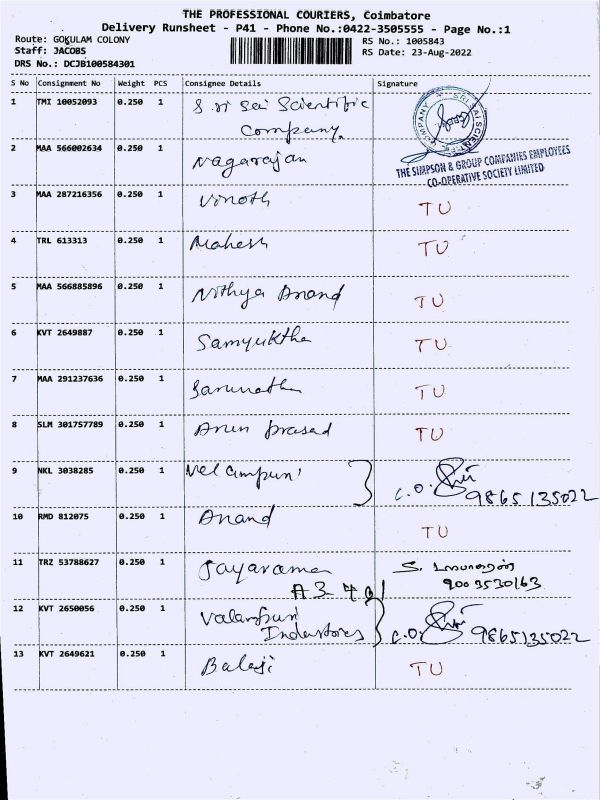 THE PROFESSIONAL COURIERS, Coimbatore
Delivery Runsheet - P41 - Phone No.:0422-3505555 - Page No.:1
Route: GOKULAM COLONY
Staff: JACOBS
DRS No.: DCJB100584301
RS No.: 1005843
RS Date: 23-Aug-2022
S No Consignment No Weight PCS Consignee Details Signature
1 TMI 10052093 0.250 1 S ri Sai Scientific
Company.
COMPANY SRI SAI SCIENTIFIC
2 MAA 566002634 0.250 1 Nagarajan
THE SIMPSON & GROUP COMPANIES EMPLOYEES
CO-OPERATIVE SOCIETY LIMITED
3 MAA 287216356 0.250 1 Vinoth TU
4 TRL 613313 0.250 1 Mahesh TU
5 MAA 566885896 0.250 1 Nithya Anand TU
6 KVT 2649887 0.250 1 Samyuktha TU
7 MAA 291237636 0.250 1 TU
8 SLM 301757789 0.250 1 Arun prasad TU
9 NKL 3038285 0.250 1 C.O. 9865135022
10 RMD 812075 0.250 1 Anand TU
11 TRZ 53788627 0.250 1 Jayarama S.
A3 9003530163
12 KVT 2650056 0.250 1 Valampuri
Industries C.O. 9865135022
13 KVT 2649621 0.250 1 Balaji TU